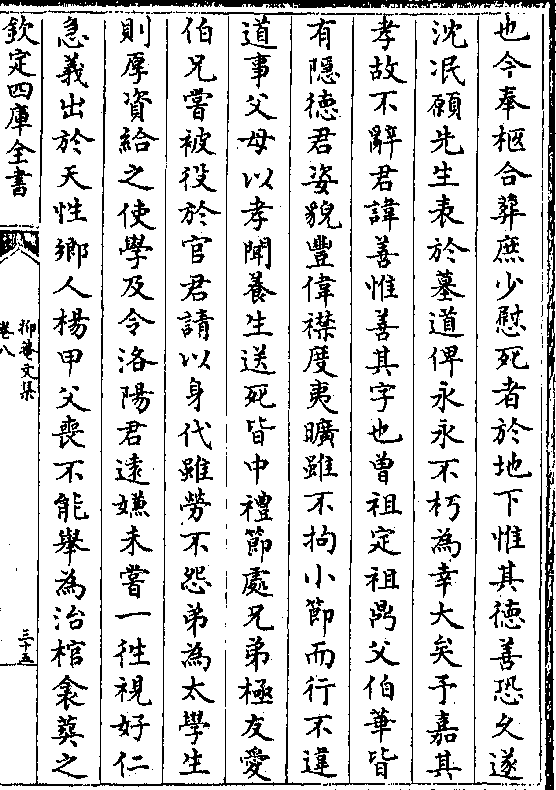 也今奉柩合葬庶少慰死者於地下惟其德善恐久遂
沈泯願先生表於墓道俾永永不朽為幸大矣予嘉其
孝故不辭君諱善惟善其字也曾祖定祖鼎父伯華皆
有隱德君姿貌豐偉襟度夷曠雖不拘小節而行不違
道事父母以孝聞養生送死皆中禮節處兄弟極友愛
伯兄嘗被役於官君請以身代雖勞不怨弟為太學生
則厚資給之使學及令洛陽君遠嫌未嘗一徃視好仁
急義出於天性鄉人楊甲父喪不能舉為治棺衾葬之
欽定四庫全書
抑菴文集
卷八
三十五